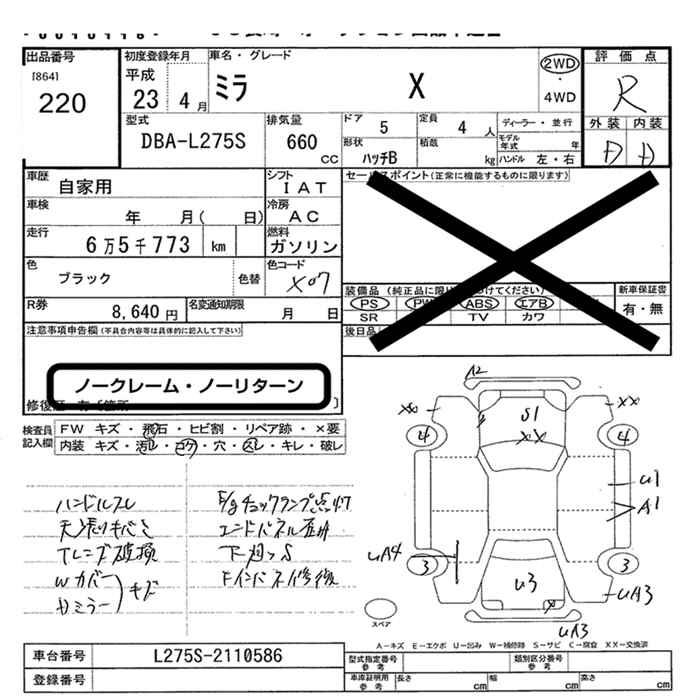 出品番号
[864]
220
初度登録年月
平成
23 4 月
車名・グレード
ミラ X
2WD
・
4WD
評価点
R
外装 内装
D D
型式
DBA-L275S
排気量
660
CC
ドア
5
定員
4 人
ディーラー・並行
モデル年式 年
形状
ハッチB
積載
kg
ハンドル 左・右
車歴
自家用
シフト
IAT
セールスポイント(正常に機能するものに限ります)
車検
年 月( 日)
冷房
AC
走行
6万5千773 km
燃料
ガソリン
色
ブラック
色替
色コード
X07
装備品
PS PW ABS エアB
SR TV カワ
新車保証書
有・無
R券
8,640 円
名変通知期限
月 日
後日品
注意事項申告欄(不具合内容等は具体的に記入して下さい)
ノークレーム・ノーリターン
検査員
記入欄
FW キズ・飛石・ヒビ割・リペア跡・×要
内装 キズ・汚レ・コゲ・穴・スレ・キレ・破レ
ハンドルスレ
天張りキバミ
Tレンズ破損
Wカバー
Dミラー
キズ
エンドパネル歪
下廻りS
Fインパネ修復
A2
XX
XX
S1
XX
4
4
U1
A1
UA4
3
3
U3
X
UA3
UA3
スペア
A-キズ E-エクボ U-凹み W-補修跡 S-サビ C-腐食 XX-交換済
車台番号
L275S-2110586
登録番号
型式指定番号
参考
類別区分番号
参考
車庫証明用
参考
長さ cm
幅 cm
高さ cm